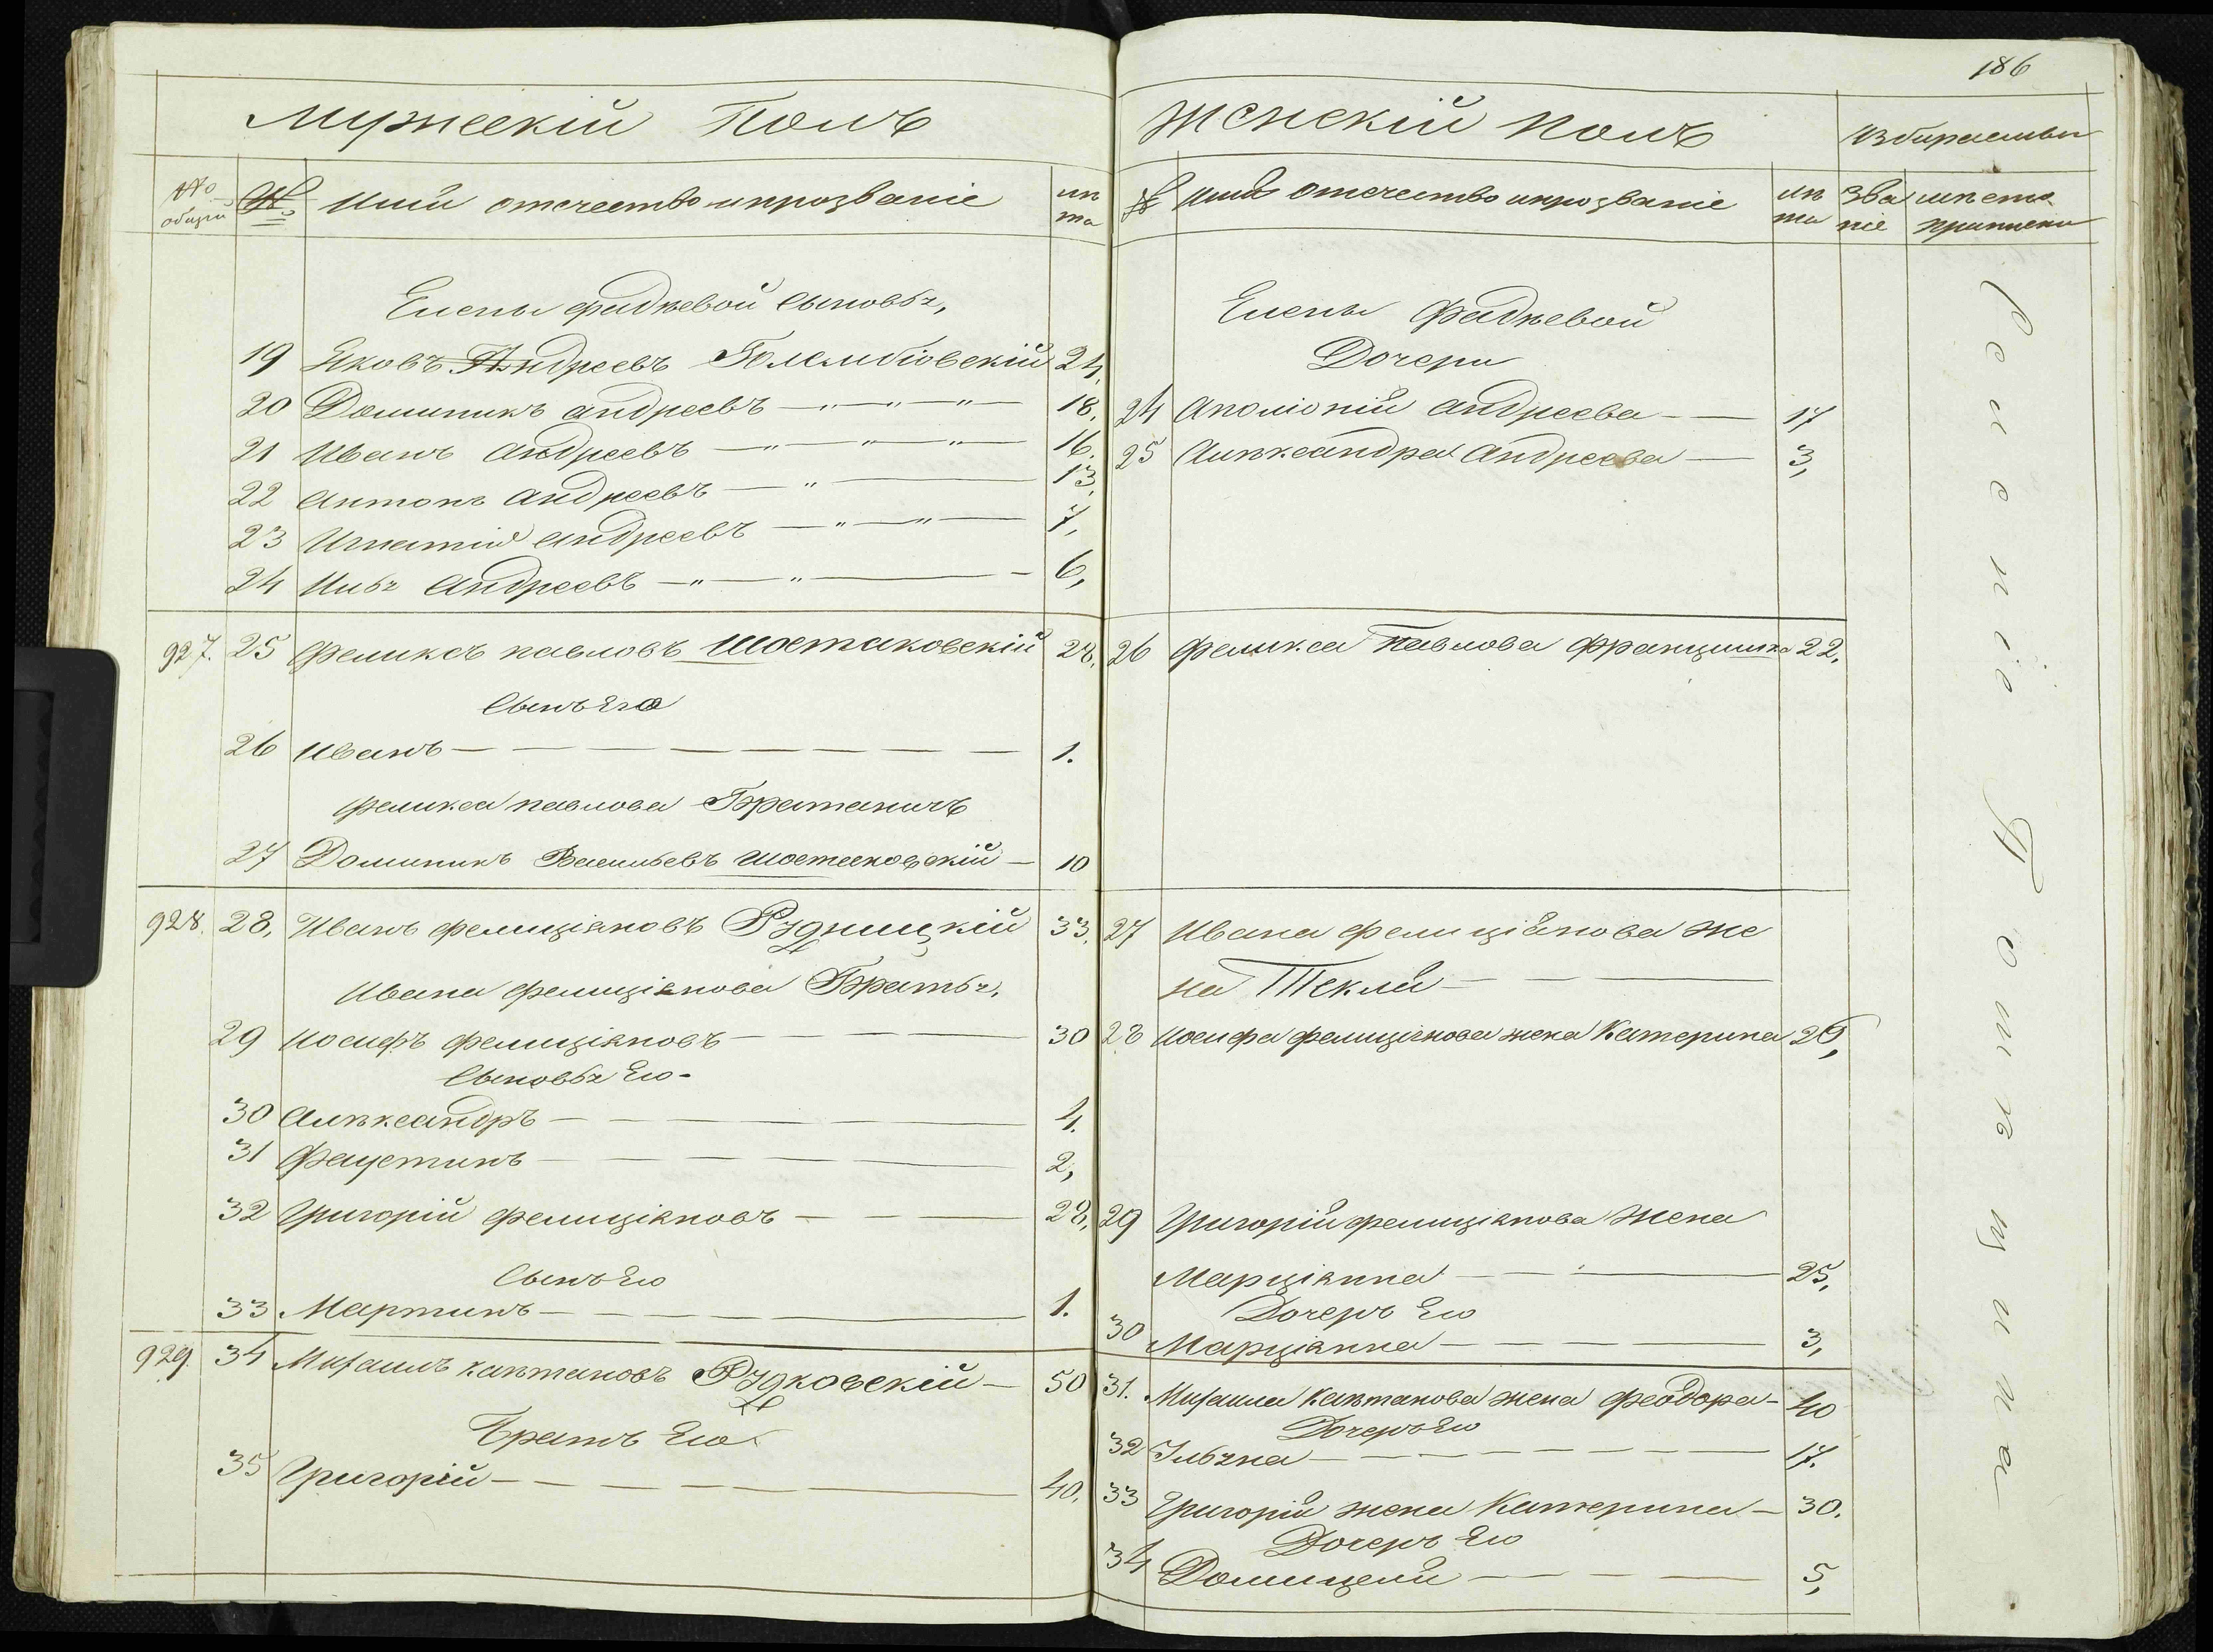 186
Мужеский Полъ
№ общий
№
Имя отчество и прозваніе
лѣта
Елены Фадѣевой Сыновья,
19 Яковъ Андреевъ Голембіовскій 24,
20 Доминикъ Андреевъ — " — " — " — 18,
21 Иванъ Андреевъ — " — " — " — 16,
22 Антонъ Андреевъ — " — 13,
23 Игнатій Андреевъ — " — " — 7,
24 Илья Андреевъ — " — " — 6,
927. 25 Феликсъ Павловъ Шостаковскій 28,
Сынъ Его
26 Иванъ — 1.
Феликса Павлова Братаничъ
27 Доминикъ Васильевъ Шостаковскій — 10
928. 28, Иванъ Фелиціановъ Рудницкій 33,
Ивана Фелиціанова Братья,
29 Иосифъ Фелиціановъ — 30
Сыновья Его
30 Алѣксандръ — 4.
31 Фаустинъ — 2,
32 Григорій Фелиціановъ — 28,
Сынъ Его
33 Мартинъ — 1.
929. 34 Михаилъ Каэтановъ Рудковскій — 50
Братъ Его
35 Григорій — 40.
Женскій полъ
Избираемы
№ Имя отчество и прозваніе
лѣта
Званіе
мѣсто приписки
Елены Фадѣевой
Дочери
24 Аполіонія Андреева — 17
25 Алѣксандра Андреева — 3,
26 Феликса Павлова Францишка 22,
27 Ивана Фелиціянова же
на Текля —
28 Иосифа Фелиціянова жена Катерина 29,
29 Григорій Фелиціанова Жена
Марціанна — 25,
Дочеръ Его
30 Марціанна — 3,
31. Михаила Каэтанова жена Феодора — 40
Дочеръ Его
32 Ульяна — 17.
33 Григорія жена Катерина — 30.
Дочеръ Его
34 Домицеля — 5,
Селеніе Гоmѣцина